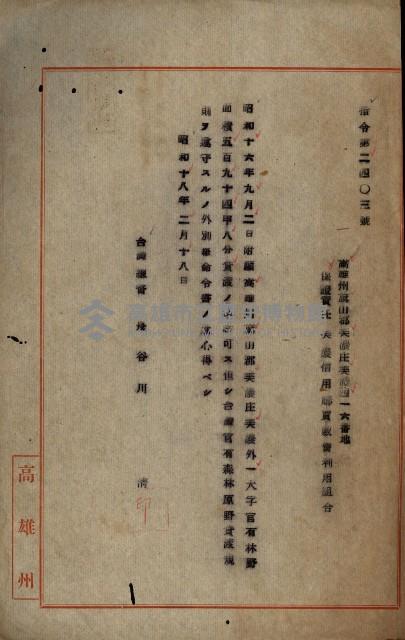 指令第二四〇三號
高雄州旗山郡美濃庄美濃四一六番地
保證責任美濃信用購買販賣利用組合
昭和十六年九月二日附願高雄州旗山郡美濃庄美濃外一大字官有林野
面積五百九十四甲八分貸渡ノ件許可ス但シ台灣官有森林原野貸渡規
則ヲ遵守スルノ外別紙命令書ノ通心得ベシ
昭和十八年二月十八日
台灣總督 長谷川 清 印
高雄州
高雄市立歷史博物館